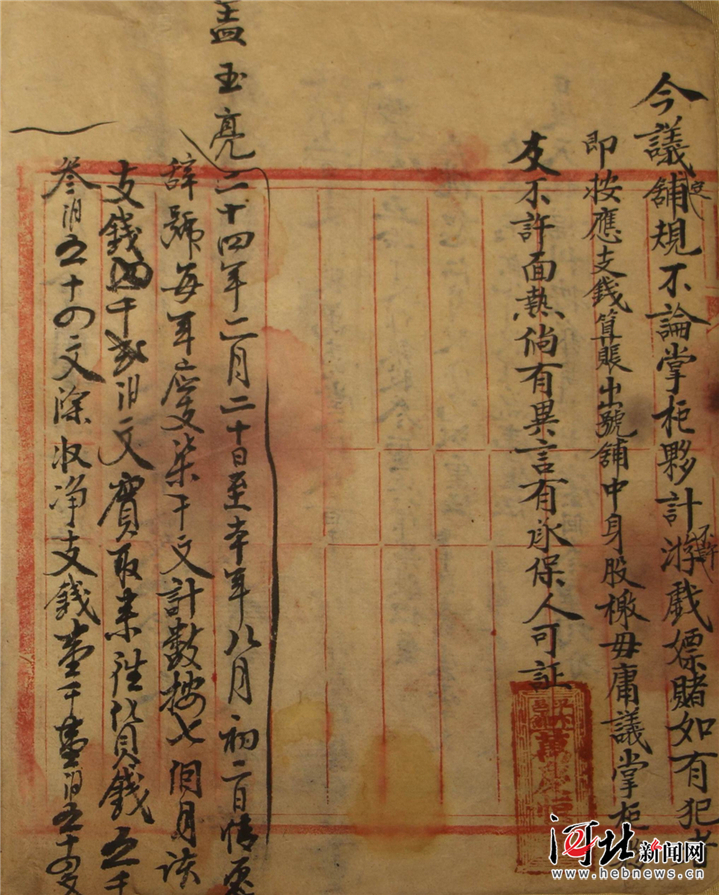 今議定舖規不論掌柜夥計不許游戲嫖賭如有犯者
即按應支錢算賬出號舖中身股概毋庸議掌柜
友不許面熟倘有異言有承保人可証
萬慶
孟玉亮二十四年二月二十日至本年八月初二日情愿
辭號每年應支柒千文計數按七個月該
支錢四千弍百文實取未往貨錢五千
叁百五十四文除收净支錢壹千壹百五十四文
河北新闻网
www.hebnews.cn